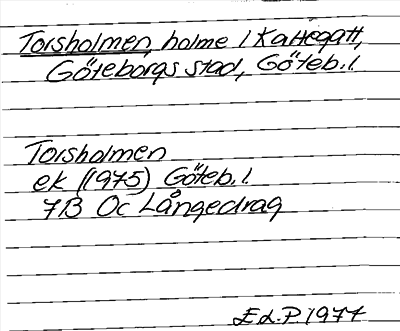 Torsholmen, holme i Kattegatt,
Göteborgs stad, Göteb. l.
Torsholmen
ek (1975) Göteb. l.
7B Oc Långedrag
E d. P. 1977